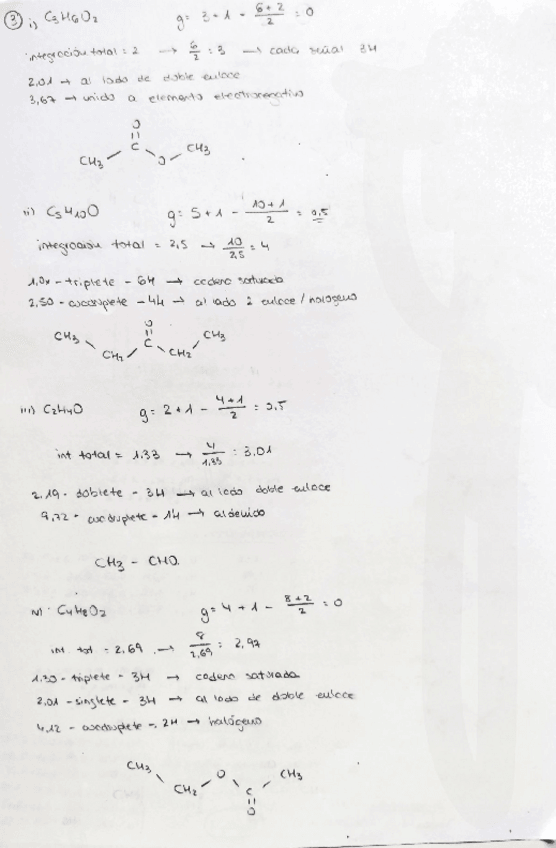 ③ i) C3H6O2 g= 3+1 - 6+2/2 = 0
integración total = 2 → 6/2 = 3 → cada señal 3H
2,01 → al lado de doble enlace
3,67 → unido a elemento electronegativo
O
||
CH3 C O CH3
ii) C5H10O g= 5+1 - 10+1/2 = 0,5
integración total = 2,5 → 10/2,5 = 4
triplete - 6H → cadena saturada
2,50 - cuadruplete - 4H → al lado 2 enlace / halógeno
CH3 O CH3
||
CH2 C CH2
iii) C2H4O g= 2+1 - 4+1/2 = 0,5
int total = 1.33 → 4/1,33 : 3,01
2,19 - doblete - 3H → al lado doble enlace
9,72 - cuadruplete - 1H → aldehído
CH3 - CHO
iv) C4H8O2 g= 4+1 - 8+2/2 = 0
int. tot = 2,69 → 8/2,69 : 2,97
1,30 - triplete - 3H → cadena saturada
2,01 - singlete - 3H → al lado de doble enlace
4,12 - cuadruplete - 2H → halógeno
CH3 O CH3
CH2 C
||
O